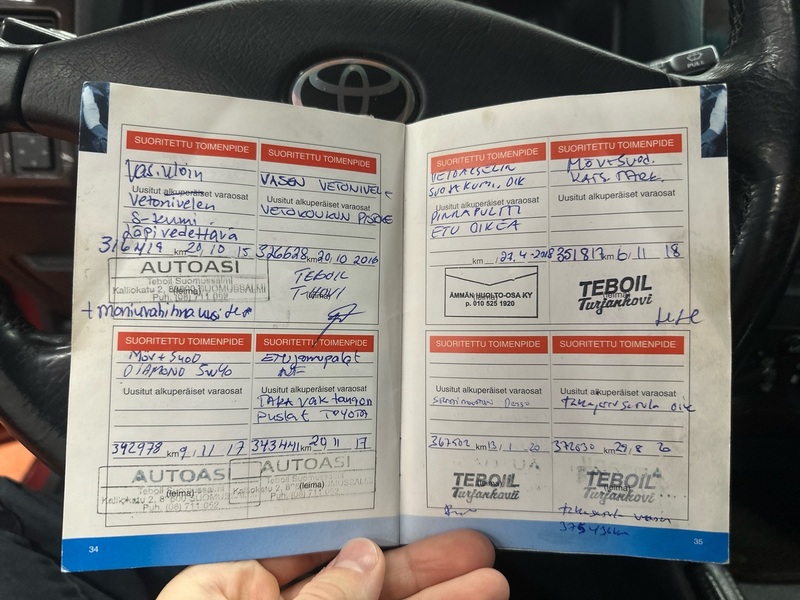 PULL
SUORITETTU TOIMENPIDE
Vas. uloin
Uusitut alkuperäiset varaosat
Vetonivelen
S-kumi.
Läpivedettävä
316419 km 20, 10 15
AUTOASI
Teboil Suomussalmi
Kalliokatu 2, 89600 SUOMUSSALMI
Puh. (08) 711 092
(leima)
+ moniurahihna uusittu
SUORITETTU TOIMENPIDE
VASEN VETONIVEL
Uusitut alkuperäiset varaosat
VETOKOUKUN
326628 km 20, 10 2016
TEBOIL
T-HOVI
(leima)
SUORITETTU TOIMENPIDE
Möv + Suod
DIAMOND 5w40
Uusitut alkuperäiset varaosat
342978 km 9, 11 17
AUTOASI
Teboil Suomussalmi
Kalliokatu 2, 89600 SUOMUSSALMI
Puh. (08) 711 092
(leima)
SUORITETTU TOIMENPIDE
ETUjarrupalat
Uusitut alkuperäiset varaosat
TAKA VAK tangon
Puslat TOYOTA
343441 km 29 11 17
AUTOASI
Teboil Suomussalmi
Kalliokatu 2, 89600 SUOMUSSALMI
Puh. (08) 711 092
(leima)
34
SUORITETTU TOIMENPIDE
VETOAKSELIN
SUOJAKUMI. OIK
Uusitut alkuperäiset varaosat
PINNAPULTTI
ETU OIKEA
km 27. 4 - 2018
ÄMMÄN HUOLTO-OSA KY
p. 010 525 1920
SUORITETTU TOIMENPIDE
MÖV+SUOD.
KATS. TARK.
Uusitut alkuperäiset varaosat
351817 km 6, 11 18
TEBOIL
(leima)
Turjankovi
SUORITETTU TOIMENPIDE
Uusitut alkuperäiset varaosat
367502 km 13, 1 20
TEBOIL
(leima)
Turjankovi
SUORITETTU TOIMENPIDE
Uusitut alkuperäiset varaosat
takajarrusatula oik
372630 km 29, 8 20
TEBOIL
(leima)
Turjankovi
35